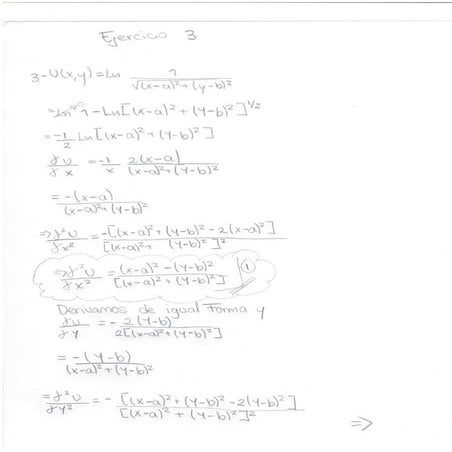 Ejercicio 3
3-U(x,y)=Ln 1/√((x-a)²+(y-b)²)
=Ln 1 - Ln[(x-a)²+(y-b)²]^1/2
=-1/2 Ln[(x-a)²+(y-b)²]
∂U/∂x = -1/x 2(x-a)/((x-a)²+(y-b)²)
= -(x-a)/((x-a)²+(y-b)²)
⇒ ∂²U/∂x² = -[(x-a)²+(y-b)²-2(x-a)²]/[(x-a)²+(y-b)²]²
⇒ ∂²U/∂x² = (x-a)²-(y-b)²/[(x-a)²+(y-b)²] ①
Derivamos de igual Forma y
∂U/∂y = - 2(y-b)/2[(x-a)²+(y-b)²]
= -(y-b)/((x-a)²+(y-b)²)
= ∂²U/∂y² = - [(x-a)²+(y-b)²-2(y-b)²]/[(x-a)²+(y-b)²]²
⇒